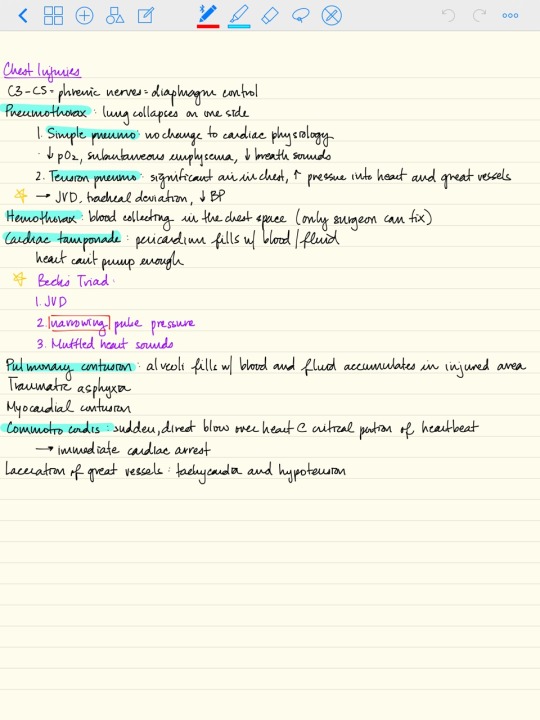 Chest Injuries
C3-C5 = phrenic nerves = diaphragm control
Pneumothorax: lung collapses on one side
1. Simple pneumo: no change to cardiac physiology
· ↓ pO2, subcutaneous emphysema, ↓ breath sounds
2. Tension pneumo: significant air in chest, ↑ pressure into heart and great vessels
→ JVD, tracheal deviation, ↓ BP
Hemothorax: blood collecting in the chest space (only surgeon can fix)
Cardiac tamponade: pericardium fills w/ blood/fluid
heart can't pump enough
Beck's Triad:
1. JVD
2. narrowing pulse pressure
3. Muffled heart sounds
Pulmonary contusion: alveoli fills w/ blood and fluid accumulates in injured area
Traumatic asphyxia
Myocardial contusion
Commotio cordis: sudden, direct blow over heart c critical portion of heartbeat
→ immediate cardiac arrest
Laceration of great vessels: tachycardia and hypotension